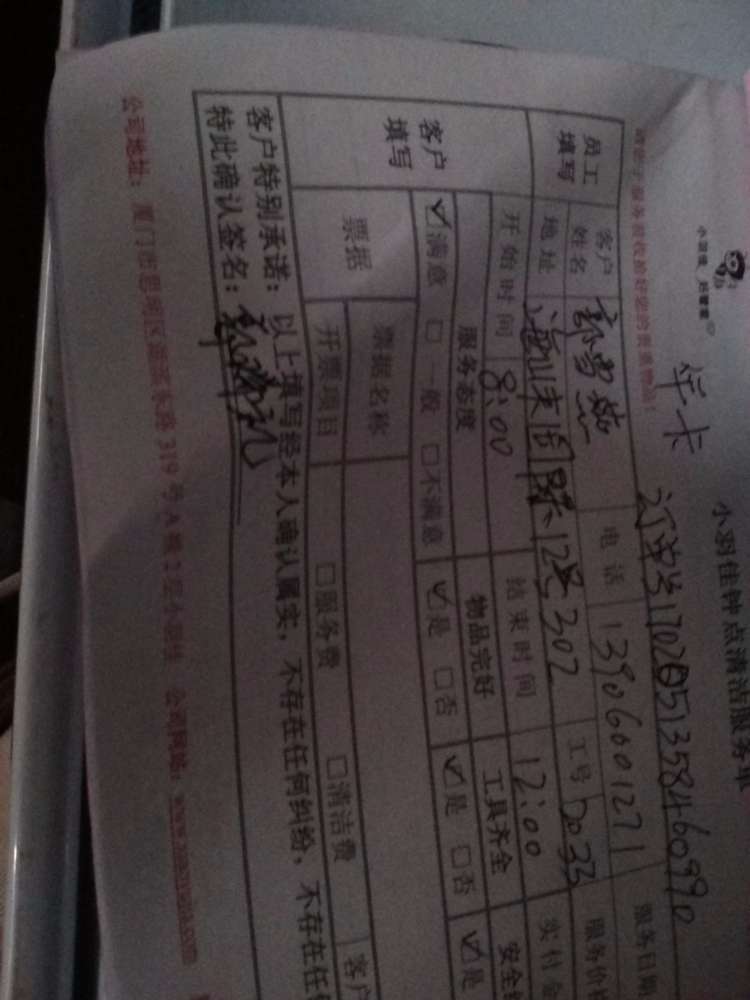 小羽佳 好管家
小羽佳钟点清洁服务单
年卡
订单号1702051358460990
服务验收前好您的贵重物品！
员工填写
客户姓名
电话 13906001271
服务日期
地址
12号302
工号
服务价
开始时间 8:00
结束时间 12:00
实付金
客户填写
服务态度
物品完好
工具齐全
安全
☑满意 □一般 □不满意
☑是 □否
☑是 □否
☑是
票据
票据名称
开票项目
□服务费
□清洁费
客户
客户特别承诺：以上填写经本人确认属实，不存在任何纠纷，不存在任
特此确认签名：
公司地址：厦门市思明区 东路319号A栋2层小羽佳 公司网站：www.xiaoyujia.com